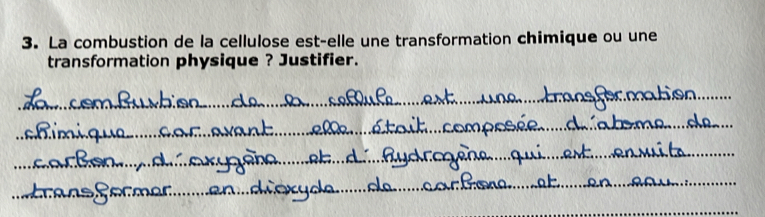 3. La combustion de la cellulose est-elle une transformation chimique ou une
transformation physique ? Justifier.
La combustion de la cellule est une transformation
chimique car avant elle était composée d'atome de
carbon, d'oxygène et d'hydrogène qui est ensuite
transformer en dioxyde de carbone et en eau.